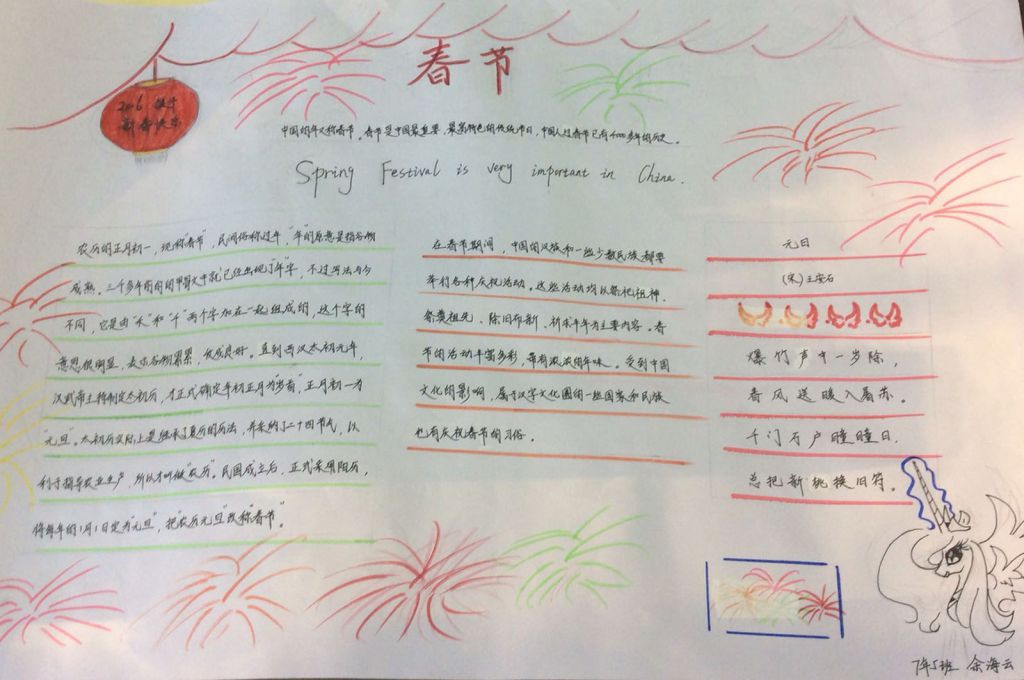 春节
2016
新春快乐
中国的年又称春节。春节是中国最重要,最富特色的传统节日,中国人过春节已有4000多年的历史。
Spring Festival is very important in China.
农历的正月初一,现称"春节",民间俗称过年,"年"的原意是指谷物
成熟。三千多年前的甲骨文中就已经出现了"年"字,不过写法与今
不同,它是由"禾"和"千"两个字加在一起组成的,这个字的
意思很明显,表示谷物累累,收成良好。直到西汉太初元年,
汉武帝主持制定太初历,才正式确定年初正月为"岁首",正月初一为
"元旦"。太初历实际上是继承了夏历的历法,并采纳了二十四节气,以
利于指导农业生产,所以才叫做"农历"。民国成立后,正式采用阳历,
将每年的1月1日定为"元旦",把"农历元旦"改称"春节"。
在春节期间,中国的汉族和一些少数民族都要
举行各种庆祝活动。这些活动均以祭祀祖神、
祭奠祖先、除旧布新、祈求丰年为主要内容。春
节的活动丰富多彩,带有浓浓的年味。受到中国
文化的影响,属于汉字文化圈的一些国家和民族
也有庆祝春节的习俗。
元日
(宋)王安石
爆竹声中一岁除,
春风送暖入屠苏。
千门万户曈曈日,
总把新桃换旧符。
7年5班 余海云